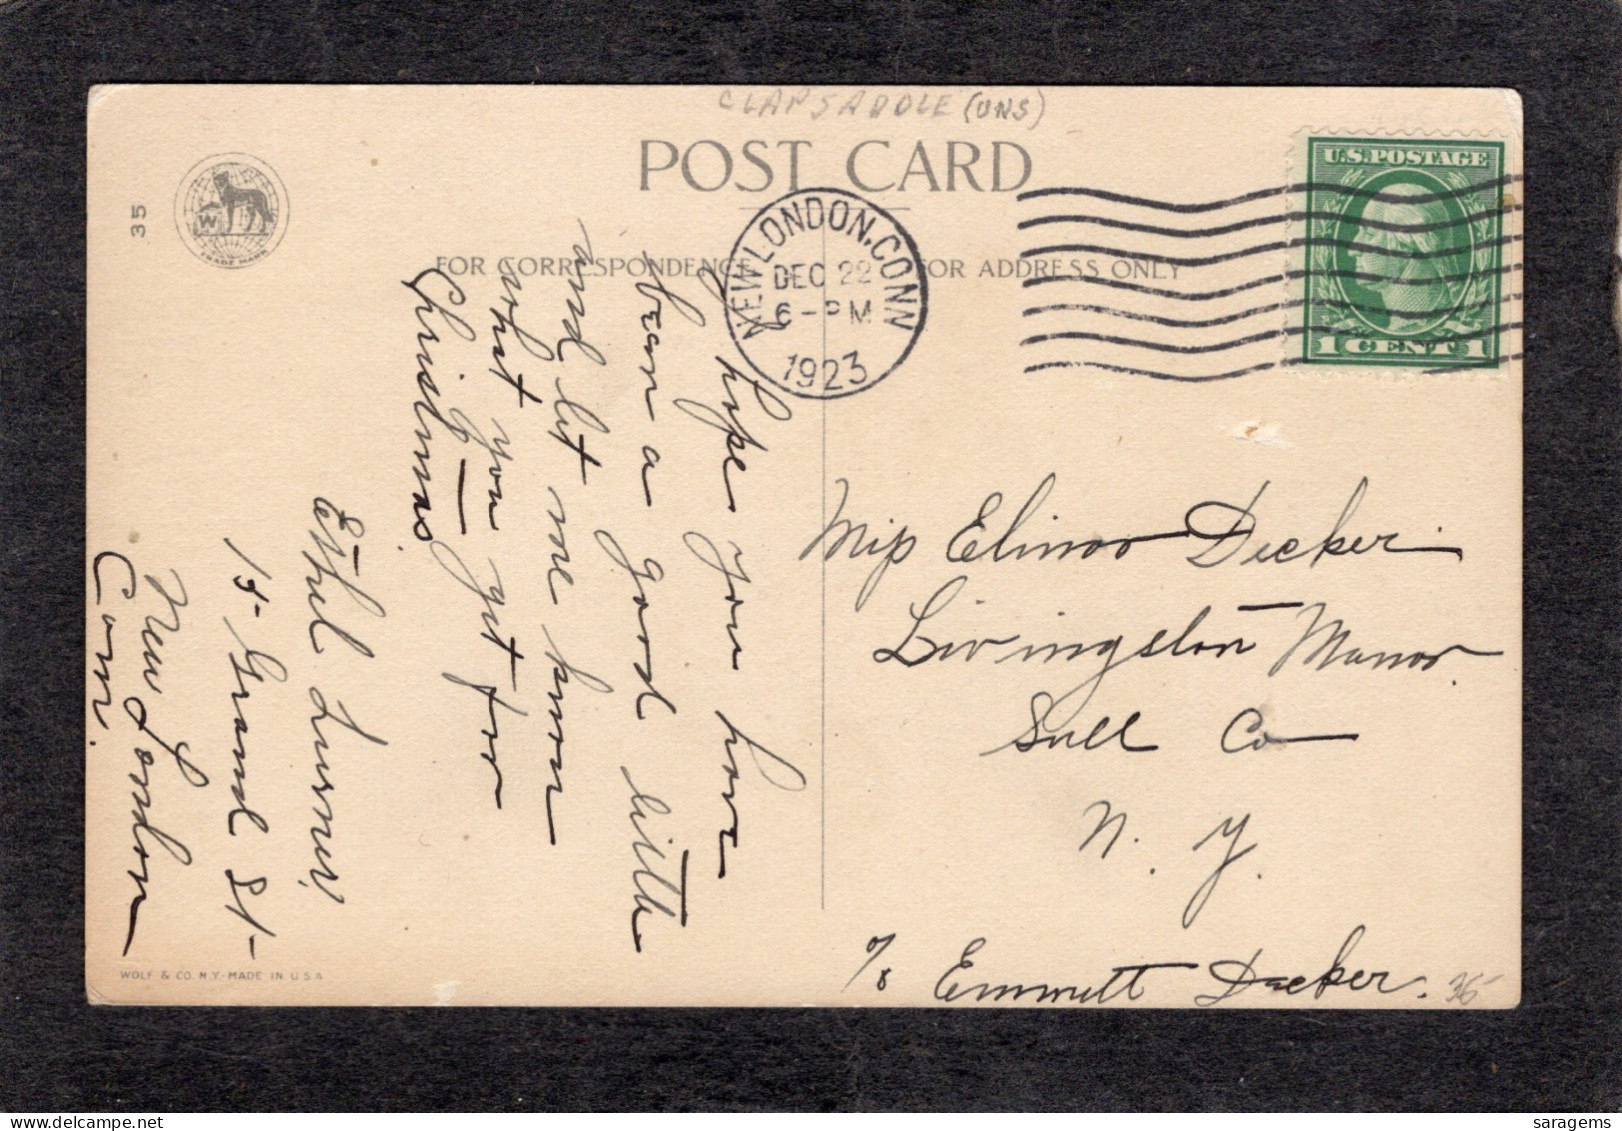 CLAPSADDLE (UNS)
POST CARD
35
W
TRADE MARK
FOR CORRESPONDENCE
FOR ADDRESS ONLY
NEW LONDON, CONN
DEC 22
6-PM
1923
U.S. POSTAGE
1 CENT 1
I hope you have
been a good little
and let me know
what you get for
Christmas
Ethel Turner
15 Grand St-
New London
Conn.
Miss Elinor Decker
Livingston Manor
Sull Co
N. Y.
c/o Emmett Decker.
36-
WOLF & CO. N.Y.-MADE IN U.S.A.
saragems